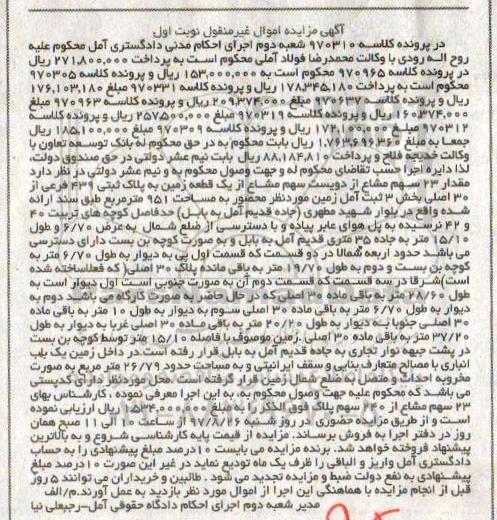 آگهی مزایده اموال غیرمنقول نوبت اول
در پرونده کلاسه ۹۷۰۳۱۰ شعبه دوم اجرای احکام مدنی دادگستری آمل محکوم علیه
روح اله رودی با وکالت محمدرضا فولاد آملی محکوم است به پرداخت ۲۷۱,۸۰۰,۰۰۰ ریال
در پرونده کلاسه ۹۷۰۹۶۵ محکوم است به ۱۵۳,۰۰۰,۰۰۰ ریال و پرونده کلاسه ۹۷۰۳۰۵
محکوم است به پرداخت ۱۷۸,۳۴۵,۱۸۰ ریال و پرونده کلاسه ۹۷۰۳۳۱ مبلغ ۱۷۶,۱۰۳,۱۸۰
ریال و پرونده کلاسه ۹۷۰۶۳۷ مبلغ ۲۰۹,۳۷۴,۰۰۰ ریال و پرونده کلاسه ۹۷۰۹۶۳ مبلغ
۱۶۰,۳۷۴,۰۰۰ ریال و پرونده کلاسه ۹۷۰۳۱۹ مبلغ ۲۵۷,۵۰۰,۰۰۰ ریال و پرونده کلاسه
۹۷۰۳۱۲ مبلغ ۱۷۲,۱۰۰,۰۰۰ ریال و پرونده کلاسه ۹۷۰۳۰۹ مبلغ ۱۸۵,۱۰۰,۰۰۰ ریال
جمعا به مبلغ ۱,۷۶۳,۶۹۶,۳۶۰ ریال بابت محکوم به در حق محکوم له بانک توسعه تعاون با
وکالت خدیجه فلاح و پرداخت ۸۸,۱۸۴,۸۱۰ ریال بابت نیم عشر دولتی در حق صندوق دولت،
لذا دایره اجرا حسب تقاضای محکوم له و جهت وصول محکوم به و نیم عشر دولتی در نظر دارد
مقدار ۲۳ سهم مشاع از دویست سهم مشاع از یک قطعه زمین به پلاک ثبتی ۴۳۰ فرعی از
۳۰ اصلی بخش ۳ ثبت آمل زمین موردنظر محصور به مساحت ۹۵۱ مترمربع طبق سند ارائه
شده واقع در بلوار شهید مطهری (جاده قدیم آمل به بابل) حدفاصل کوچه های تربیت ۴۰
و ۴۲ نرسیده به پل هوای عابر پیاده و با دسترسی از ضلع شمال به عرض ۶/۷۰ و طول
۱۵/۱۰ متر به جاده ۳۵ متری قدیم آمل به بابل و به صورت کوچه بن بست دارای دسترسی
می باشد. حدود اربعه شمالا در دو قسمت که قسمت اول پی به دیوار به طول ۶/۷۰ متر به
کوچه بن بست و دوم به طول ۱۹/۷۰ متر به باقی مانده پلاک ۳۰ اصلی( که فعلاساخته شده
است)شرقا در سه قسمت که قسمت دوم آن به صورت جنوبی است اول دیوار است به
طول ۲۸/۶۰ متر به باقی ماده ۳۰ اصلی که در حال حاضر به صورت کارگاه می باشد دوم به
طول ۶/۷۰ متر به باقی ماده ۳۰ اصلی سوم به دیوار به طول ۱۰ متر به باقی ماده
۳۰ اصلی جنوبا به دیوار به طول ۲۰/۲۰ متر به باقی ماده ۳۰ اصلی غربا به دیوار به طول
۳۷/۲۰ متر به باقی ماده ۳۰ اصلی .زمین موصوف با فاصله ۱۵/۱۰ متر توسط کوچه بن بست
در پشت جبهه نوار تجاری به جاده قدیم آمل به بابل قرار رفته است.در داخل زمین یک باب
انباری با مصالح متعارف بنایی و سقف ایرانیتی و به مساحت حدود ۲۶/۷۹ متر مربع به صورت
مخروبه احداث و متصل به ضلع شمال زمین قرار گرفته است. محل موردنظر دارای کدپستی
می باشد که محکوم علیه جهت وصول محکوم به، به این اجرا معرفی نموده . کارشناس بهای
۲۳ سهم مشاع از ۲۴۰ سهم پلاک فوق الذکر را به مبلغ ریال ارزیابی نموده
است و از طریق مزایده حضوری در روز شنبه ۹۷/۸/۲۶ از ساعت ۱۰ الی ۱۱ صبح همان
روز در دفتر اجرا به فروش برساند. مزایده از قیمت پایه کارشناسی شروع و به بالاترین
پیشنهاد فروخته خواهد شد. برنده مزایده می بایست ۱۰درصد مبلغ پیشنهادی را به حساب
دادگستری آمل واریز و الباقی را ظرف یک ماه تودیع نماید در غیر این صورت ۱۰درصد مبلغ
پیشنهادی به نفع دولت ضبط و مزایده تجدید می شود . طالبین و خریداران می توانند ۵ روز
قبل از انجام مزایده با هماهنگی این اجرا از اموال مورد نظر بازدید به عمل آورند.م/الف
مدیر شعبه دوم اجرای احکام دادگاه حقوقی آمل-رجبعلی نیا